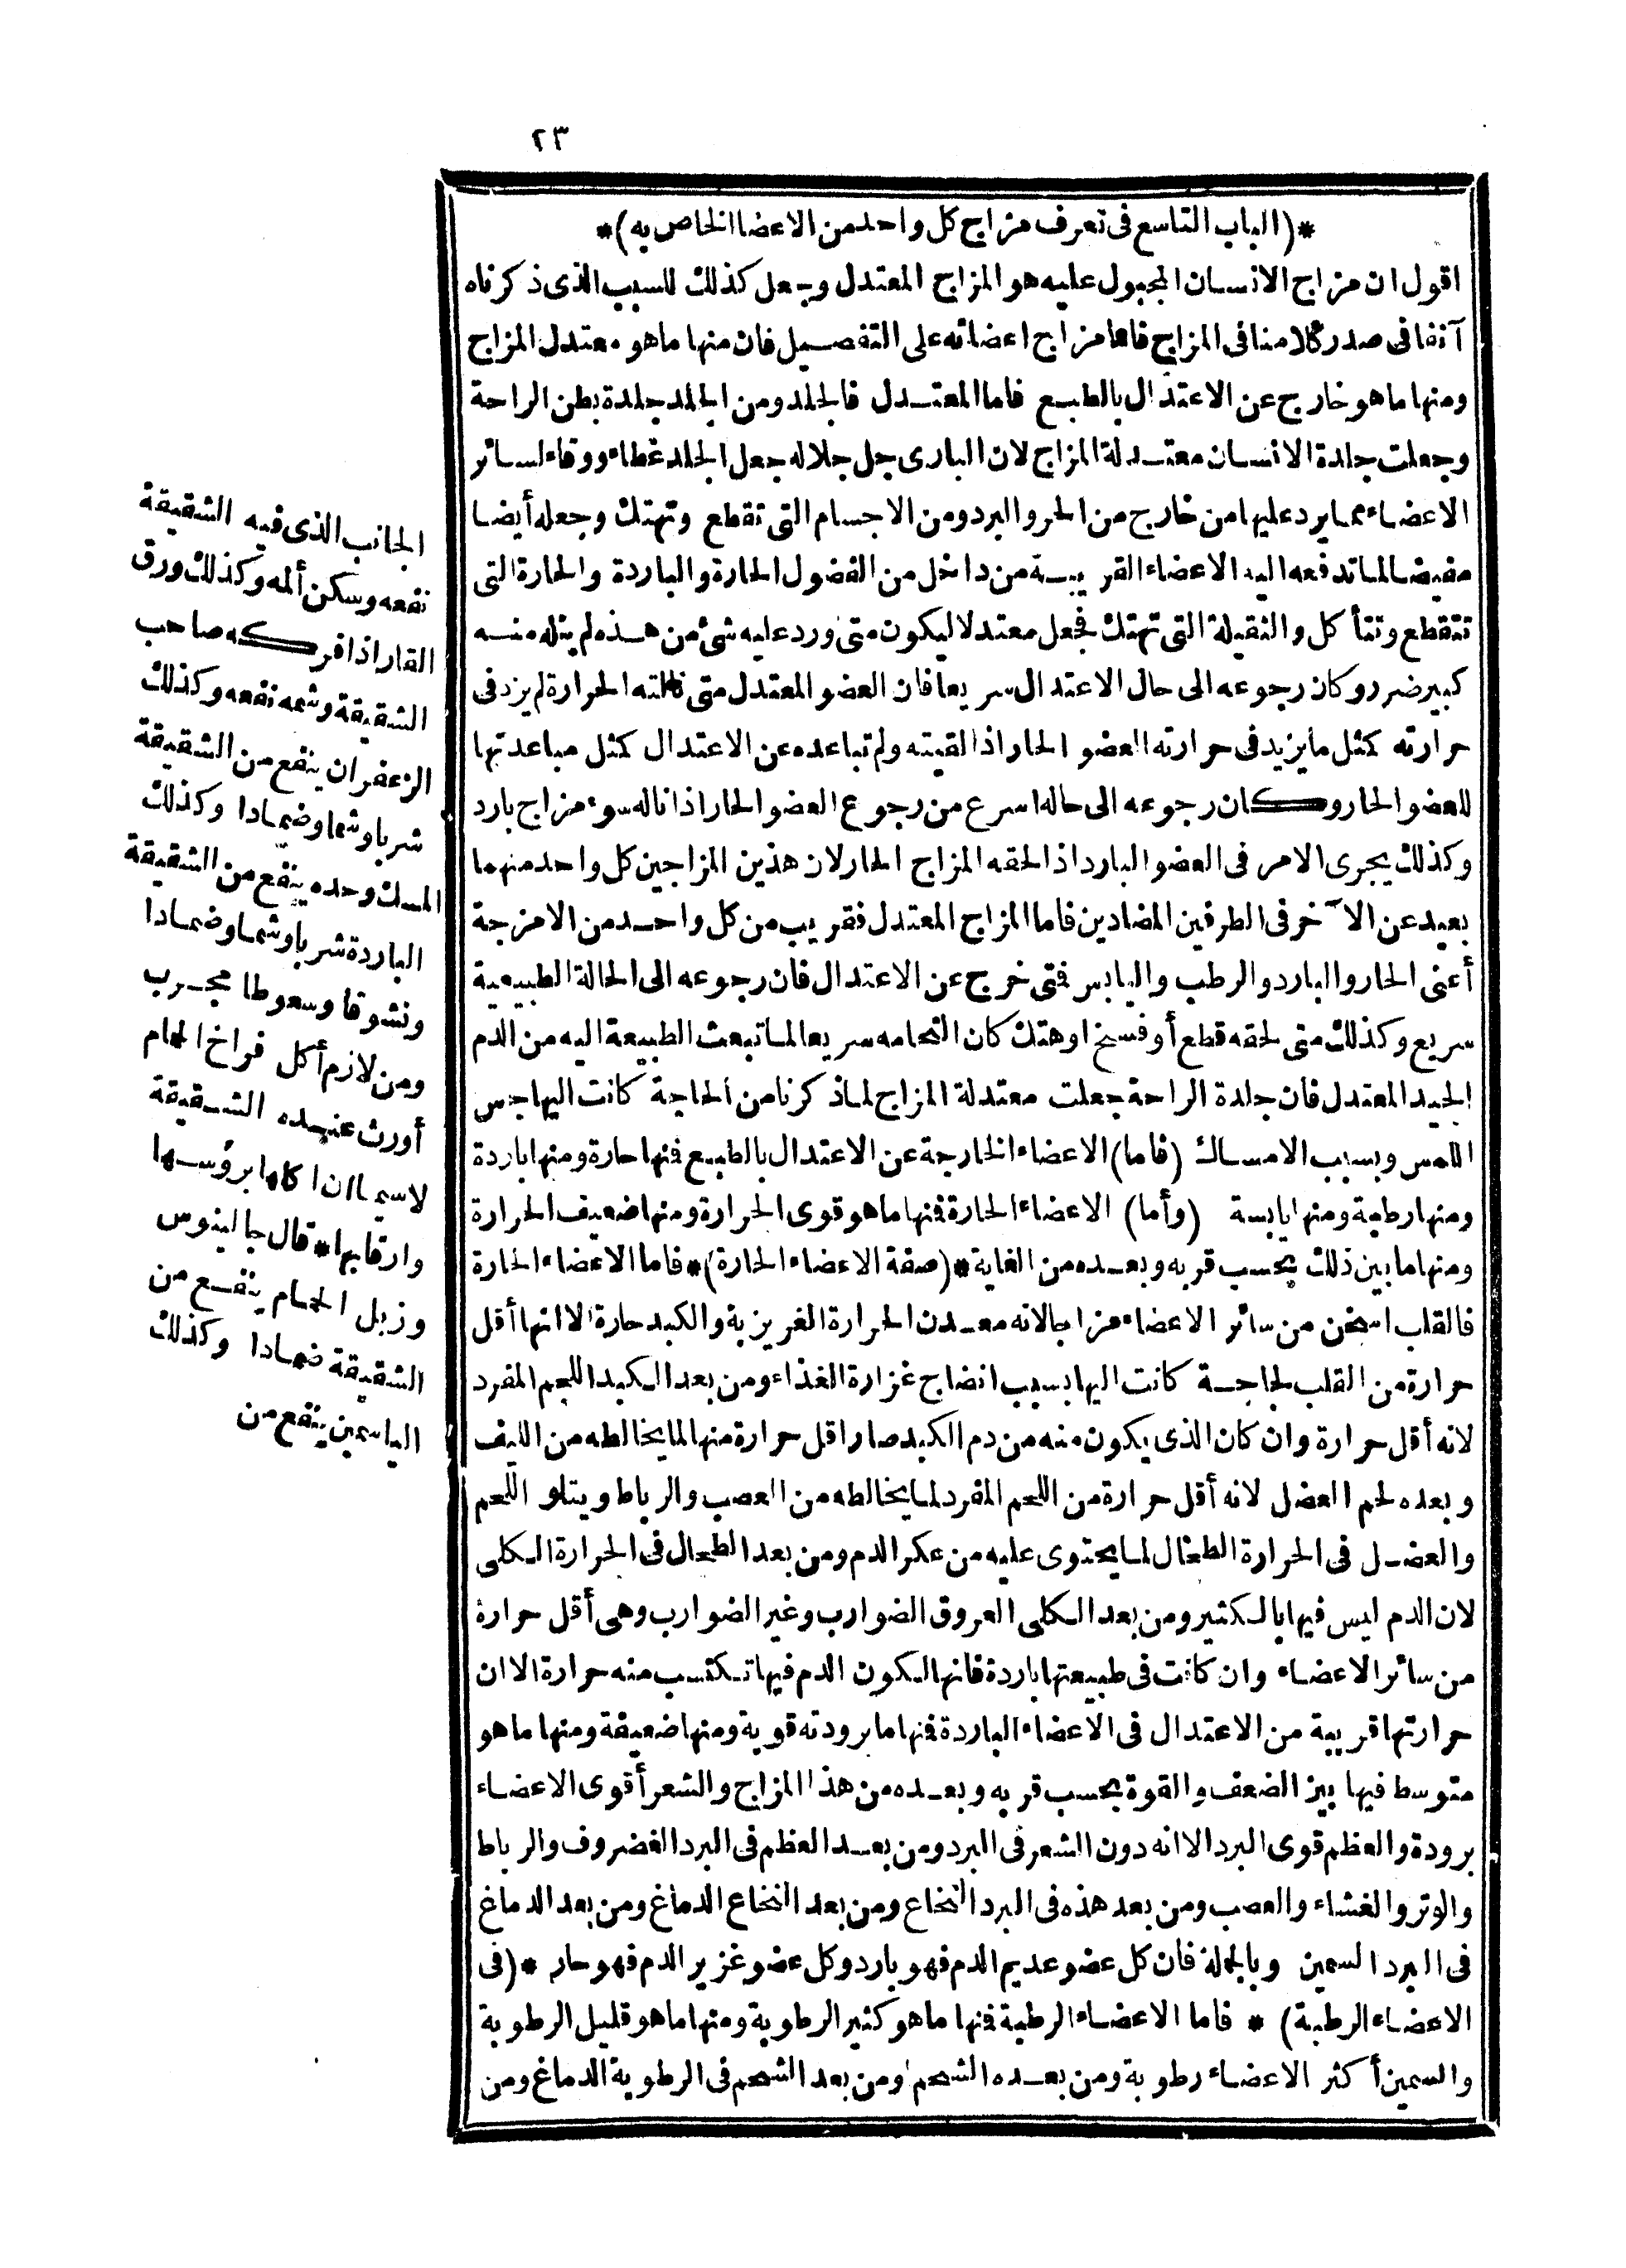 ٢٣
*(الباب التاسع فى تعرف مزاج كل واحد من الاعضا الخاص به)*
اقول ان مزاج الانسان المجبول عليه هو المزاج المعتدل وجعل كذلك للسبب الذى ذكرناه
آنفا فى صدر كلامنا فى المزاج فاما مزاج اعضائه على التفصيل فان منها ما هو معتدل المزاج
ومنها ما هو خارج عن الاعتدال بالطبع فاما المعتدل فالجلد ومن الجلد جلدة بطن الراحة
وجعلت جلدة الانسان معتدلة المزاج لان البارى جل جلاله جعل الجلد غطاء ووقاء لسائر
الاعضاء مما يرد عليها من خارج من الحر والبرد ومن الاجسام التى تقطع وتهتك وجعله أيضا
مفيضا لما تدفعه اليه الاعضاء القريبة من داخل من الفضول الحارة والباردة والحارة التى
تتقطع وتتأكل والثقيلة التى تهتك فجعل معتدلا ليكون متى ورد عليه شئ من هذه لم ينله منه
كبير ضرر وكان رجوعه الى حال الاعتدال سريعا فان العضو المعتدل متى نالته الحرارة لم يزد فى
حرارته كمثل ما يزيد فى حرارته العضو الحار اذا لقيته ولم تباعده عن الاعتدال كمثل مباعدتها
للعضو الحار وكان رجوعه الى حاله اسرع من رجوع العضو الحار اذا ناله سوء مزاج بارد
وكذلك يجرى الامر فى العضو البارد اذا لحقه المزاج الحار لان هذين المزاجين كل واحد منهما
بعيد عن الآخر فى الطرفين المضادين فاما المزاج المعتدل فقريب من كل واحد من الامزجة
أعنى الحار والبارد والرطب واليابس فمتى خرج عن الاعتدال فان رجوعه الى الحالة الطبيعية
سريع وكذلك متى لحقه قطع أو فسخ او هتك كان التحامه سريعا لما تبعث الطبيعة اليه من الدم
الجيد المعتدل فان جلدة الراحة جعلت معتدلة المزاج لما ذكرنا من الحاجة كانت اليها جس
اللمس وبسبب الامساك (فاما) الاعضاء الخارجة عن الاعتدال بالطبع فمنها حارة ومنها باردة
ومنها رطبة ومنها يابسة (وأما) الاعضاء الحارة فمنها ما هو قوى الحرارة ومنها ضعيف الحرارة
ومنها ما بين ذلك بحسب قربه وبعده من الغاية *(صفة الاعضاء الحارة)* فاما الاعضاء الحارة
فالقلب اسخن من سائر الاعضاء مزاجا لانه معدن الحرارة الغريزية والكبد حارة الا انها أقل
حرارة من القلب لحاجة كانت اليها بسبب انضاج غزارة الغذاء ومن بعد الكبد اللحم المفرد
لانه أقل حرارة وان كان الذى يكون منه من دم الكبد صار اقل حرارة منها لما يخالطه من الليف
وبعده لحم العضل لانه أقل حرارة من اللحم المفرد لما يخالطه من العصب والرباط ويتلو اللحم
والعضل فى الحرارة الطحال لما يحتوى عليه من عكر الدم ومن بعد الطحال فى الحرارة الكلى
لان الدم ليس فيها بالكثير ومن بعد الكلى العروق الضوارب وغير الضوارب وهى أقل حرارة
من سائر الاعضاء وان كانت فى طبيعتها باردة فانها لكون الدم فيها تكتسب منه حرارة الا ان
حرارتها قريبة من الاعتدال فى الاعضاء الباردة فمنها ما برودته قوية ومنها ضعيفة ومنها ما هو
متوسط فيها بين الضعف والقوة بحسب قربه وبعده من هذا المزاج والشعر أقوى الاعضاء
برودة والعظم قوى البرد الا انه دون الشعر فى البرد ومن بعد العظم فى البرد الغضروف والرباط
والوتر والغشاء والعصب ومن بعد هذه فى البرد النخاع ومن بعد النخاع الدماغ ومن بعد الدماغ
فى البرد السمين وبالجملة فان كل عضو عديم الدم فهو بارد وكل عضو غزير الدم فهو حار *(فى
الاعضاء الرطبة)* فاما الاعضاء الرطبة فمنها ما هو كثير الرطوبة ومنها ما هو قليل الرطوبة
والسمين أكثر الاعضاء رطوبة ومن بعده الشحم ومن بعد الشحم فى الرطوبة الدماغ ومن
الجانب الذى فيه الشقيقة
نفعه وسكن ألمه وكذلك ورق
الغار اذا فركه صاحب
الشقيقة وشمه نفعه وكذلك
الزعفران ينفع من الشقيقة
شربا وشما وضمادا وكذلك
المسك وحده ينفع من الشقيقة
الباردة شربا وشما وضمادا
ونشوقا وسعوطا مجرب
ومن لازم أكل فراخ الحمام
أورث عنده الشقيقة
لاسيما ان اكلها برؤسها
وارقابها * قال جالينوس
وزبل الحمام ينفع من
الشقيقة ضمادا وكذلك
الياسمين ينفع من